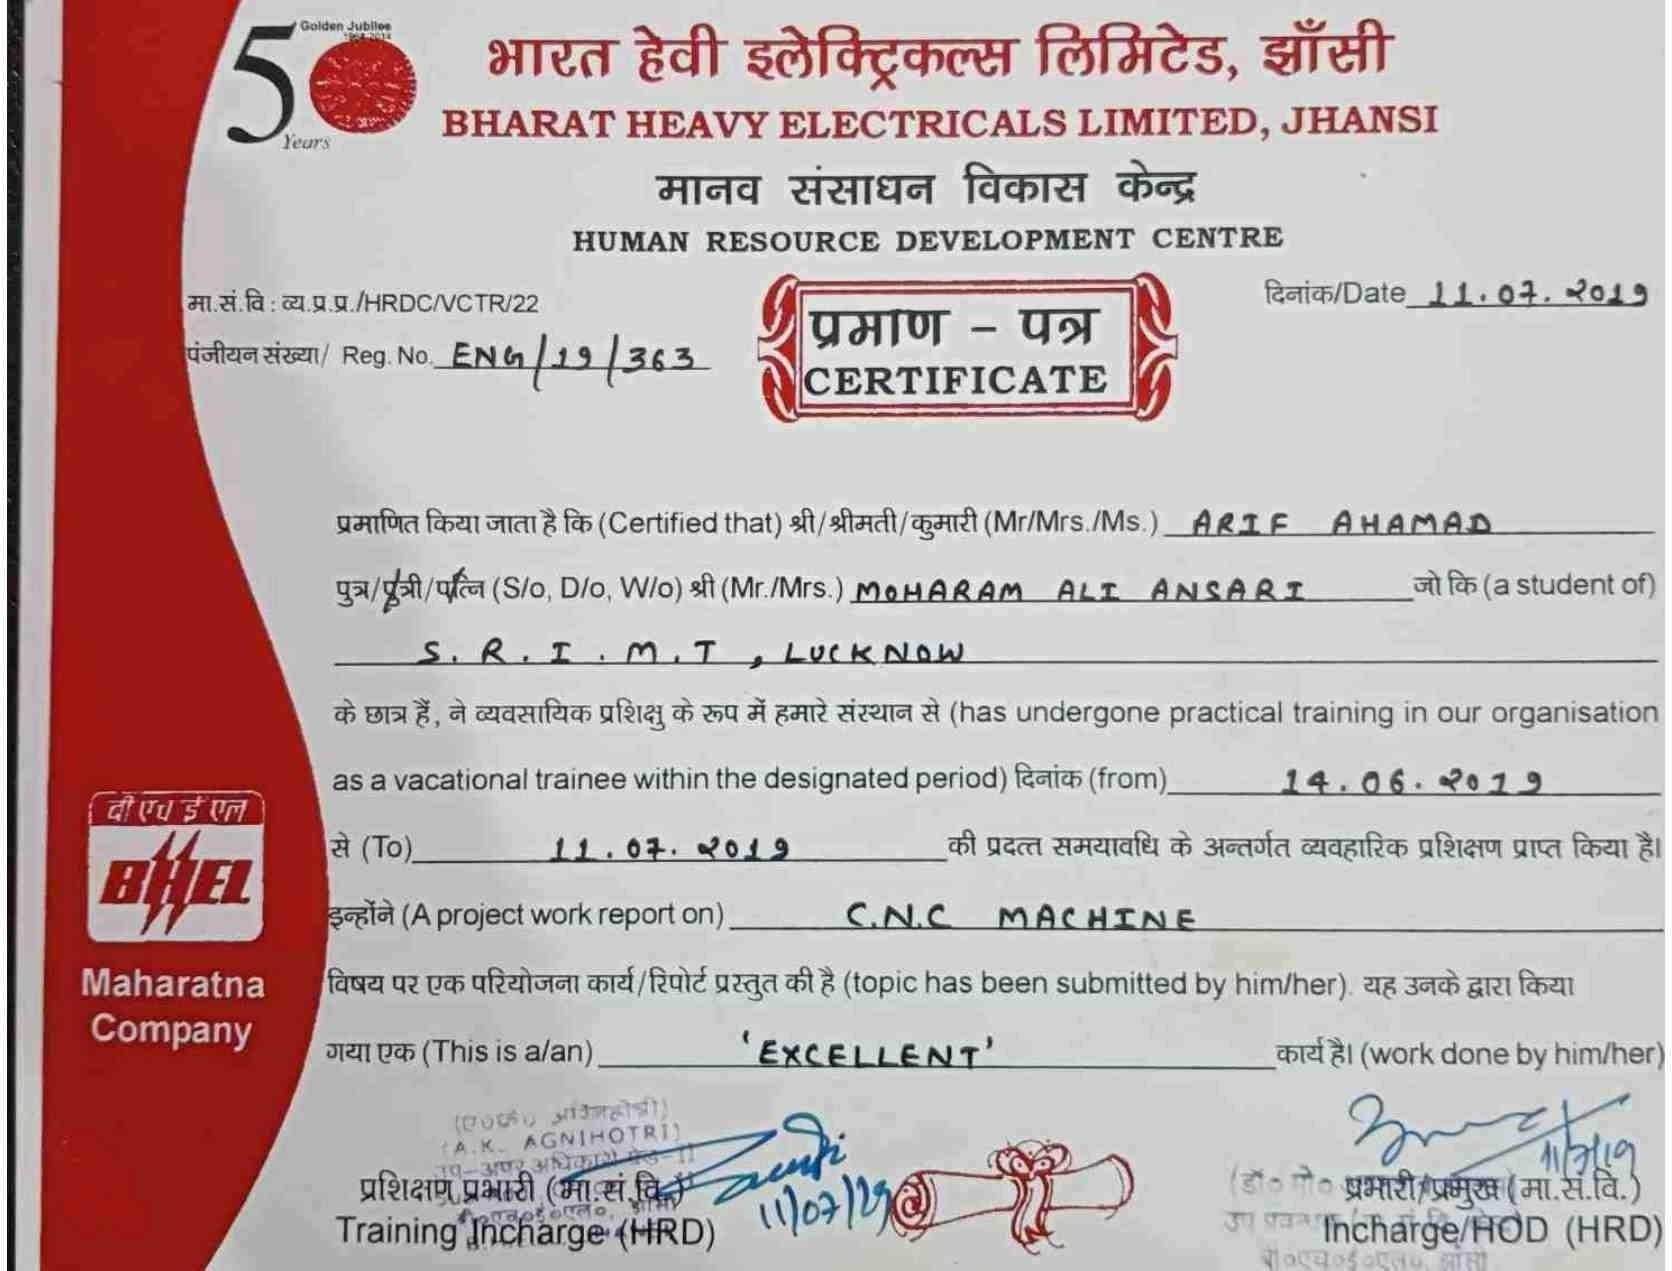 Golden Jubilee
1964-2014
50
Years
भारत हेवी इलेक्ट्रिकल्स लिमिटेड, झाँसी
BHARAT HEAVY ELECTRICALS LIMITED, JHANSI
मानव संसाधन विकास केन्द्र
HUMAN RESOURCE DEVELOPMENT CENTRE
मा.सं.वि : व्य.प्र.प्र./HRDC/VCTR/22
दिनांक/Date 11.07.2019
पंजीयन संख्या/ Reg. No. ENG/19/363
प्रमाण - पत्र
CERTIFICATE
प्रमाणित किया जाता है कि (Certified that) श्री/श्रीमती/कुमारी (Mr/Mrs./Ms.) ARIF AHAMAD
पुत्र/पुत्री/पत्नि (S/o, D/o, W/o) श्री (Mr./Mrs.) MOHARAM ALI ANSARI जो कि (a student of)
S.R.I.M.T, LUCKNOW
के छात्र हैं, ने व्यवसायिक प्रशिक्षु के रूप में हमारे संस्थान से (has undergone practical training in our organisation
as a vacational trainee within the designated period) दिनांक (from) 14.06.2019
से (To) 11.07.2019 की प्रदत्त समयावधि के अन्तर्गत व्यवहारिक प्रशिक्षण प्राप्त किया है।
इन्होंने (A project work report on) C.N.C MACHINE
विषय पर एक परियोजना कार्य/रिपोर्ट प्रस्तुत की है (topic has been submitted by him/her). यह उनके द्वारा किया
गया एक (This is a/an) 'EXCELLENT' कार्य है। (work done by him/her)
बी एच ई एल
BHEL
Maharatna
Company
(A.K. AGNIHOTRI)
11/07/19
11/7/19
प्रशिक्षण प्रभारी (मा.सं.वि.)
Training Incharge (HRD)
प्रभारी/प्रमुख (मा.सं.वि.)
Incharge/HOD (HRD)
बी०एच०ई०एल०, झांसी